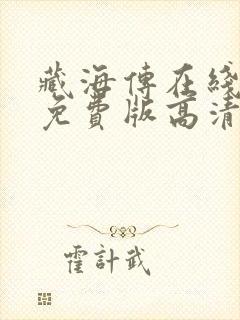 藏海傳在綫
免費版高清
霍計武